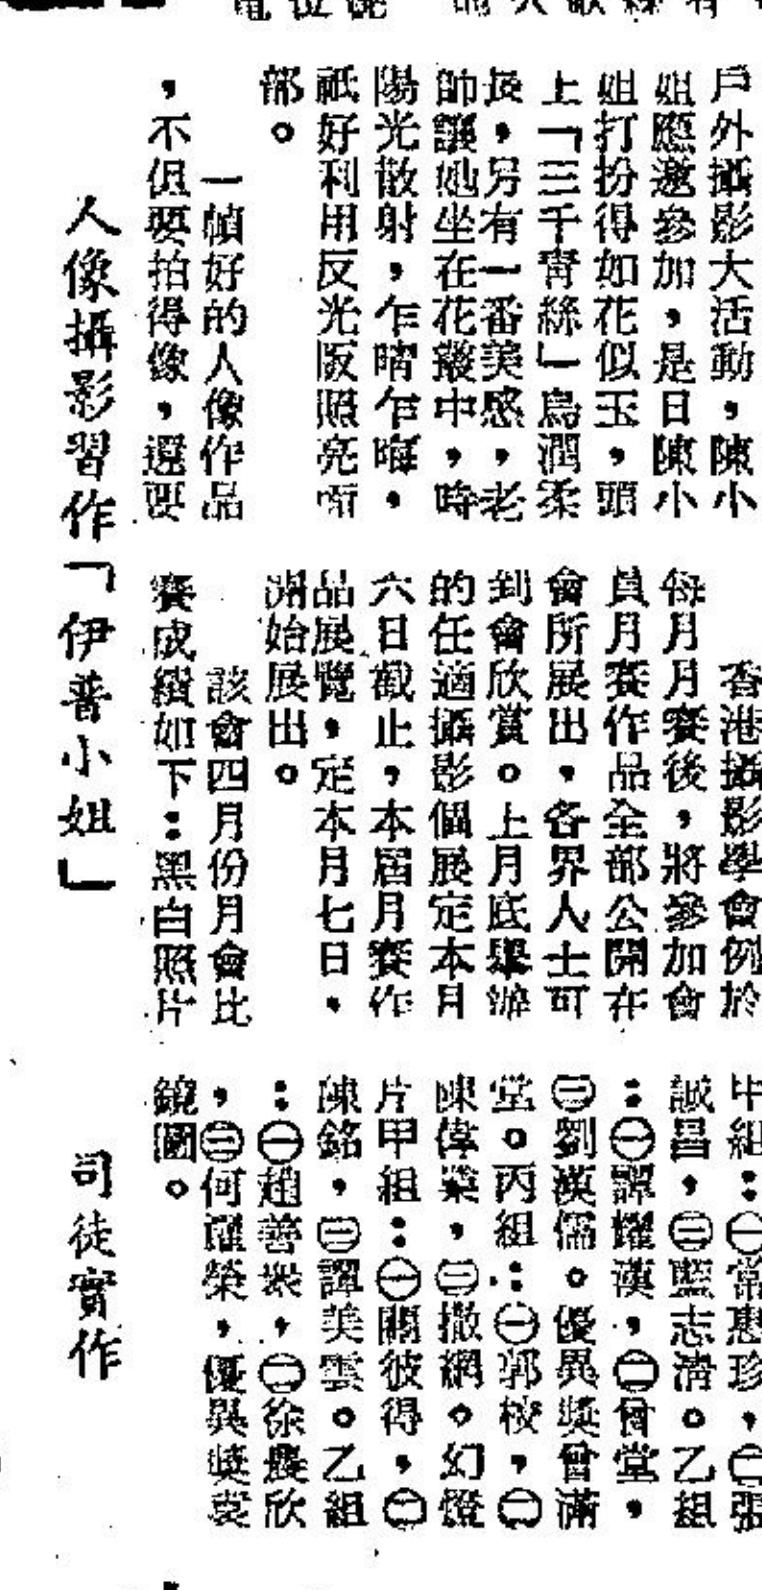 戶外攝影大活動，陳小
姐應邀參加，是日陳小
姐打扮得如花似玉，頭
上「三千青絲」烏潤柔
長，另有一番美感，老
帥讓她坐在花叢中，時
陽光散射，乍晴乍晦，
祗好利用反光版照亮面
部。
一幀好的人像作品
，不但要拍得像，還要
香港攝影學會例於
每月月賽後，將參加會
員月賽作品全部公開在
會所展出，各界人士可
到會欣賞。上月底舉辦
的任適攝影個展定本月
六日截止，本屆月賽作
品展覽，定本月七日，
開始展出。
該會四月份月會比
賽成績如下：黑白照片
甲組：㊀常惠珍，㊁張
誠昌，㊂藍志清。乙組
：㊀譚耀漢，㊁曾堂，
㊂劉漢儒。優異獎曾滿
堂。丙組：㊀郭梭，㊁
陳偉業，㊂撒網。幻燈
片甲組：㊀關彼得，㊁
陳銘，㊂譚美雲。乙組
：㊀趙善衆，㊁徐晨欣
，㊂何耀榮，優異獎袁
鏡圖。
人像攝影習作「伊普小姐」
司徒實作